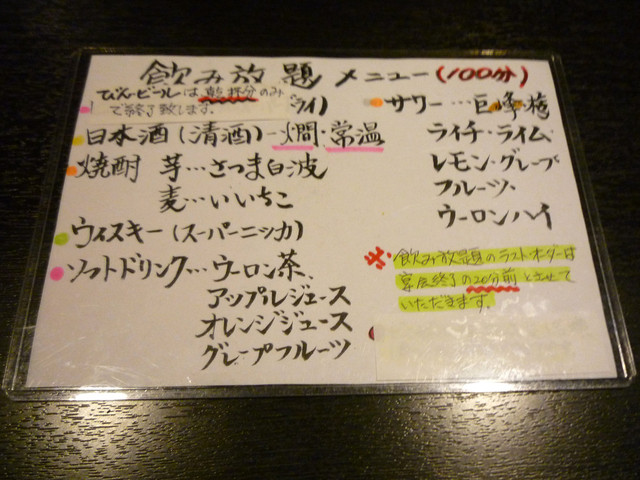 飲み放題 メニュー(100分)
びんビールは乾杯分のみ
で終了致します。
ライ)
日本酒(清酒)-燗・常温
焼酎 芋…さつま白波
麦…いいちこ
ウィスキー(スーパーニッカ)
ソフトドリンク…ウーロン茶、
アップルジュース
オレンジジュース
グレープフルーツ
サワー…巨峰・梅
ライチ・ライム・
レモン・グレープ
フルーツ・
ウーロンハイ
※飲み放題のラストオーダーは
宴会終了の20分前とさせて
いただきます。